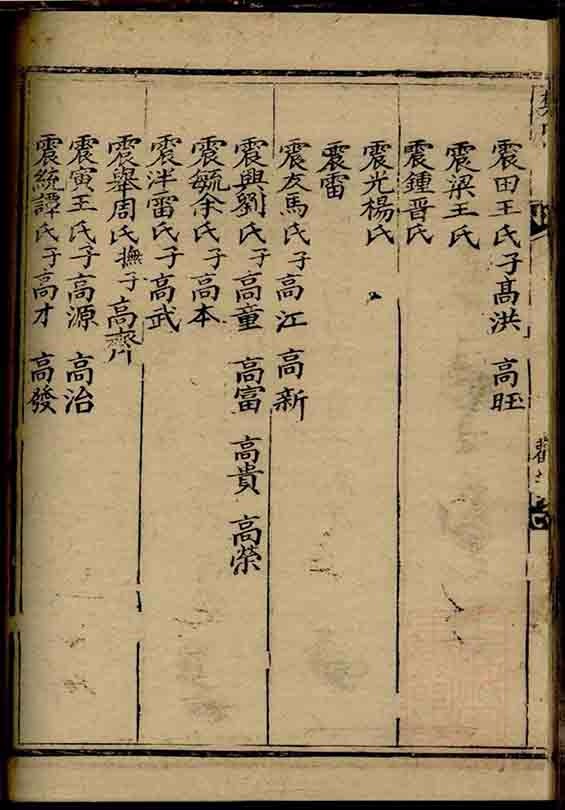 震田王氏子髙洪 高旺
震梁王氏
震鍾晋氏
震光楊氏
震雷
震友馬氏子高江 高新
震興劉氏子高童 高富 高貴 高榮
震毓余氏子高本
震泮雷氏子高武
震舉周氏撫子高齊
震寅王氏子高源 高治
震統譚氏子高才 高發